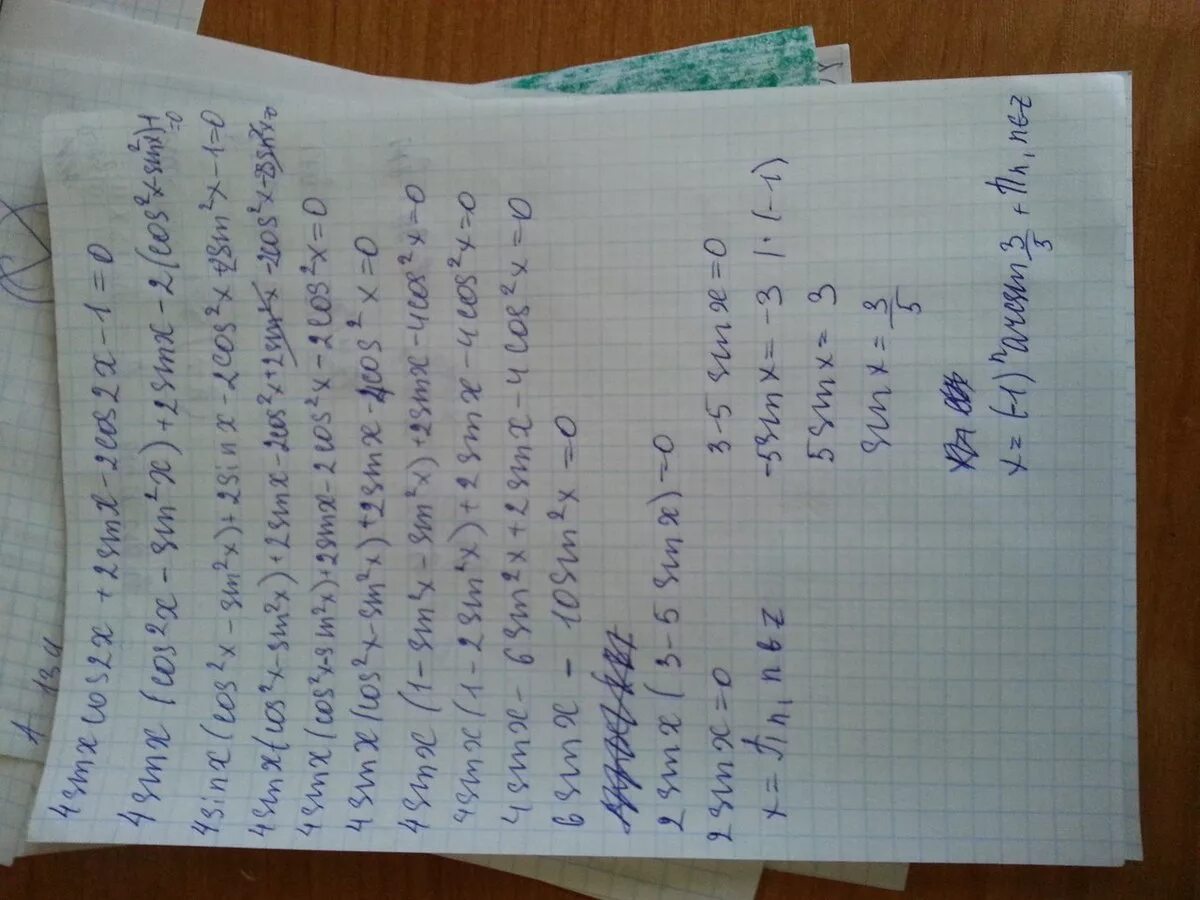 A 134
4 sinx cos2x + 2 sinx - 2cos2x - 1 = 0
4 sinx (cos²x - sin²x) + 2 sinx - 2(cos²x - sin²x) - 1 = 0
4 sinx (cos²x - sin²x) + 2 sinx - 2cos²x + 2sin²x - 1 = 0
4 sinx (cos²x - sin²x) + 2 sinx - 2cos²x + 2sin²x - 2cos²x - 2sin²x = 0
4 sinx (cos²x - sin²x) + 2sinx - 2cos²x - 2cos²x = 0
4 sinx (cos²x - sin²x) + 2 sinx - 4cos²x = 0
4 sinx (1 - sin²x - sin²x) + 2sinx - 4cos²x = 0
4 sinx (1 - 2 sin²x) + 2 sinx - 4 cos²x = 0
4 sinx - 6 sin²x + 2 sinx - 4 cos²x = 0
6 sinx - 10 sin²x = 0
2 sinx (3 - 5 sinx) = 0
2 sinx = 0
x = πn, n ∈ Z
3 - 5 sinx = 0
-5 sinx = -3 | · (-1)
5 sinx = 3
sinx = 3/5
x = (-1)ⁿ arcsin 3/3 + πn, n ∈ Z